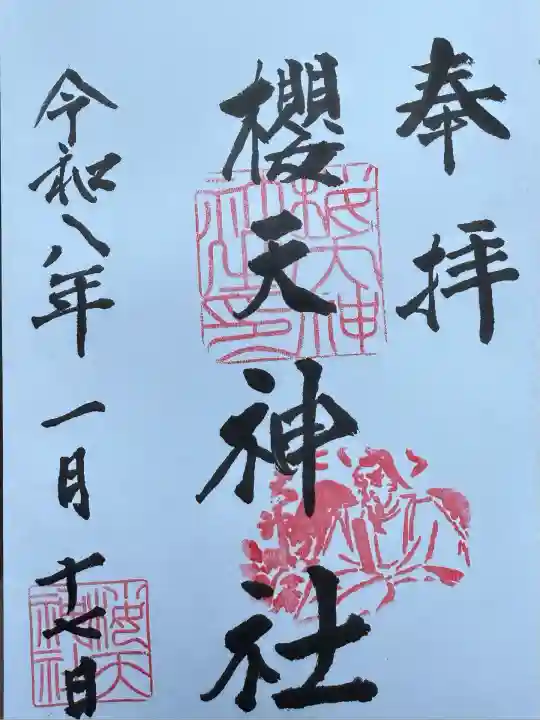 奉拝
櫻天神社
櫻天神
令和八年 一月 十七日
桜天
神社